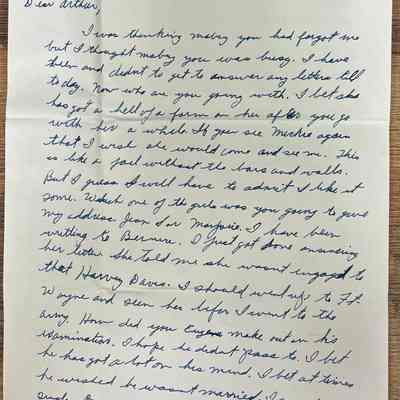 Dear Arthur,
I was thinking maby you had forgot me
but I thought maby you was busy. I have
been and didnt to get to answer any letters till
today. Now who are you going with. I bet she
has got a hell of a form on her after you go
with her a while. If you see again
that I wish she would come and see me. This
is like a jail without the bars and walls.
But I guess I will have to admit I like it
some. Which one of the girls was you going to give
my address Jean or Marjorie. I have been
writing to Bernice. I just got done answering
her letter she told me she wasn't engaged to
that Harvey Davis. I should went up to Ft.
Wayne and seen her befor I went to the
army. How did you Eugene make out in his
examination. I hope he didn't pass to. I bet
he has got a lot on his mind. I bet at times
he wished he wasn't married.